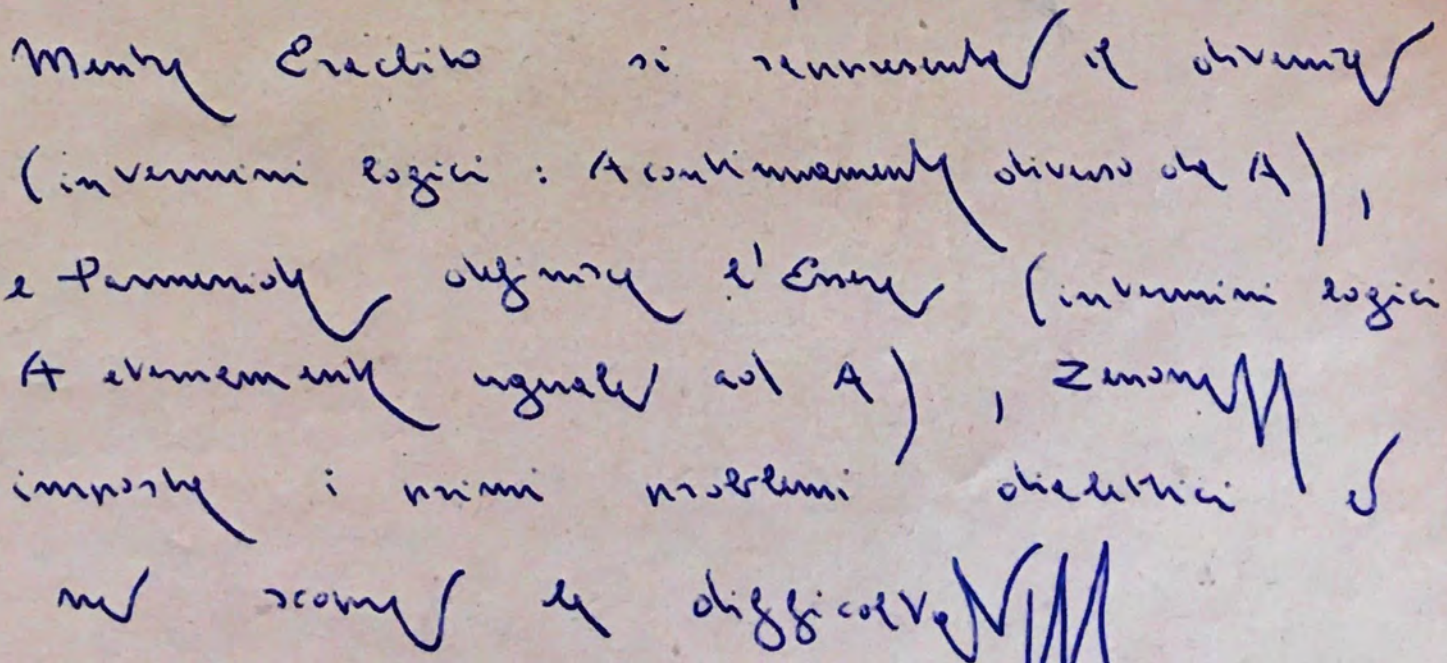 Mentre Eraclito si rappresenta il divenire
(in termini logici : A continuamente diverso da A),
e Parmenide definisce l'Essere (in termini logici
A eternamente uguale ad A), Zenone
imposta i primi problemi dialettici e
ne scopre le difficoltà